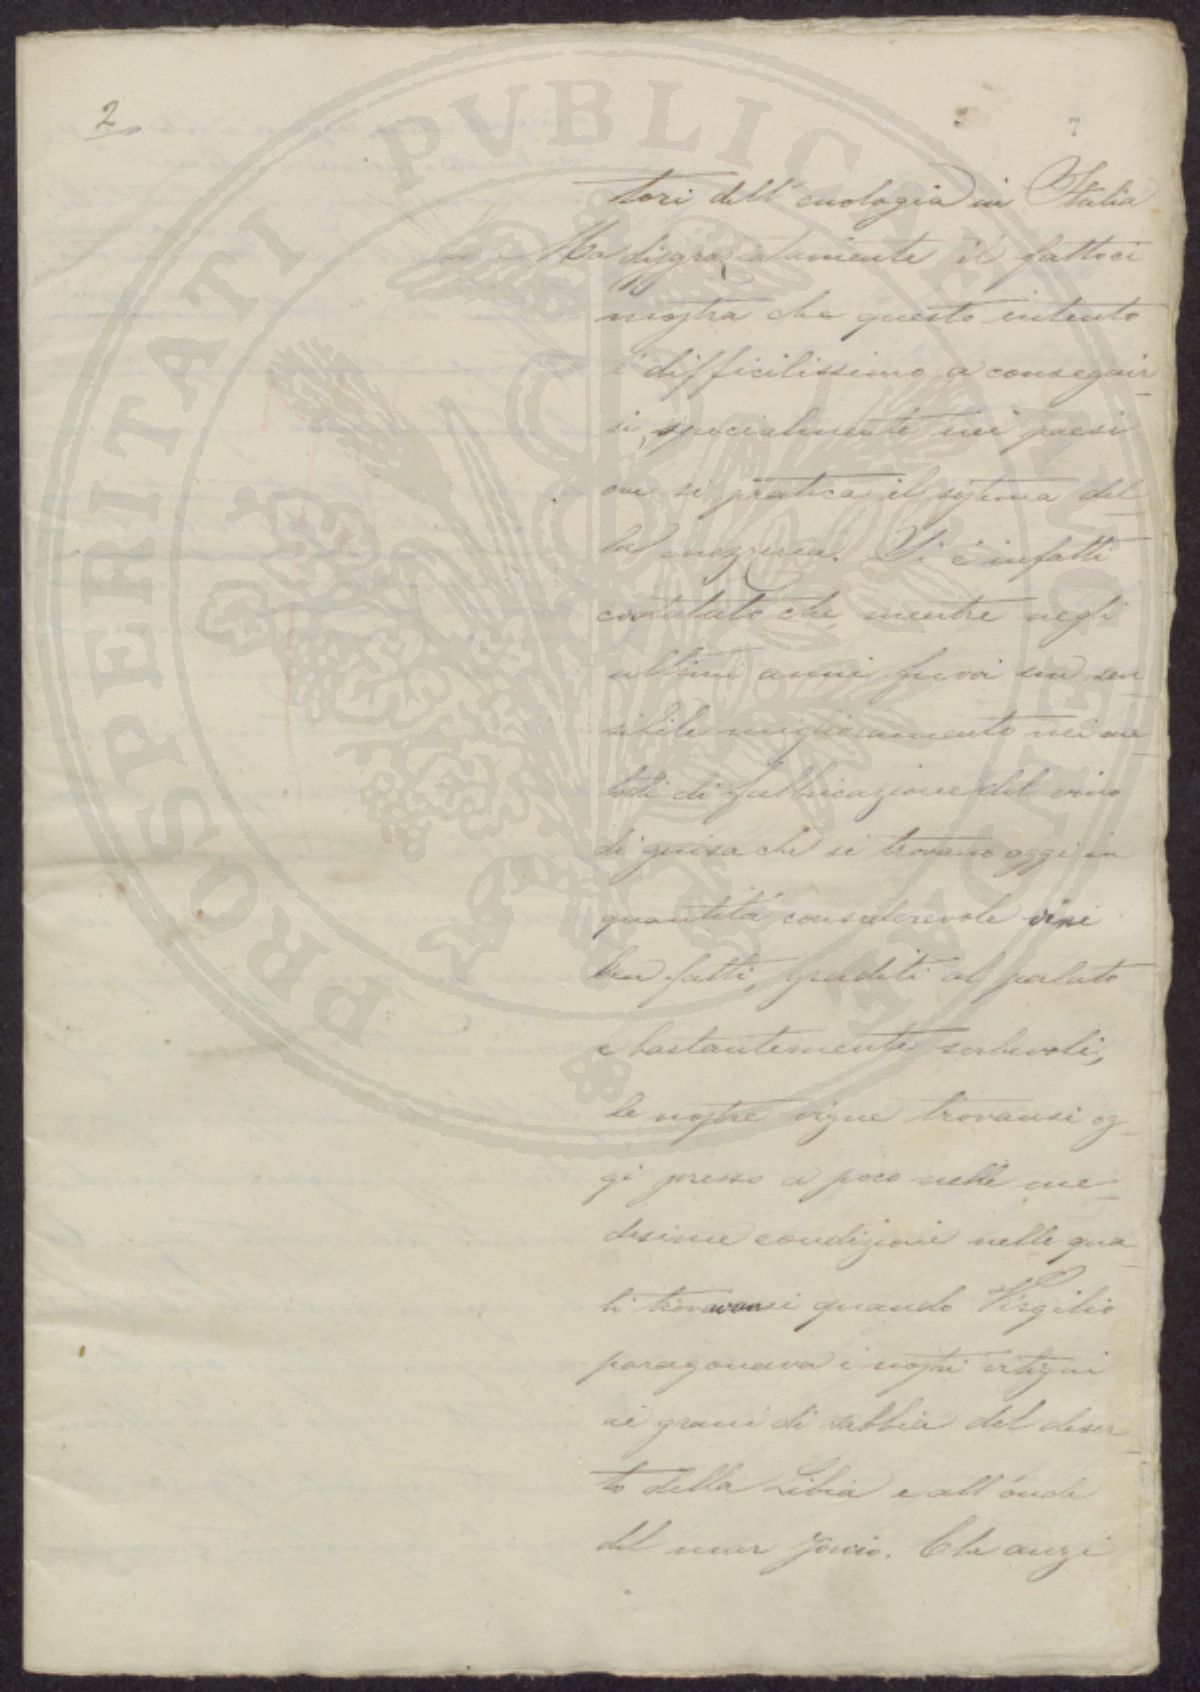 2
7
tori dell'enologia in Italia
Ma disgraziatamente il fatto ci
mostra che questo intento
è difficilissimo a conseguir-
si, specialmente nei paesi
ove si pratica il sistema del-
la mezzeria. Si è infatti
constatato che mentre negli
ultimi anni fuvvi un sen-
sibile miglioramento nei me-
todi di fabbricazione del vino
di guisa che si trovano oggi in
quantità considerevole vini
ben fatti, graditi al palato
e bastantemente serbevoli,
le nostre vigne trovansi og-
gi presso a poco nelle me-
desime condizioni nelle qua-
li trovavansi quando Virgilio
paragonava i nostri vitigni
ai grani di sabbia del deser-
to della Libia e all'onde
del mar Jonio. Che anzi
PROSPERITATI PUBLICAE AUGENDAE